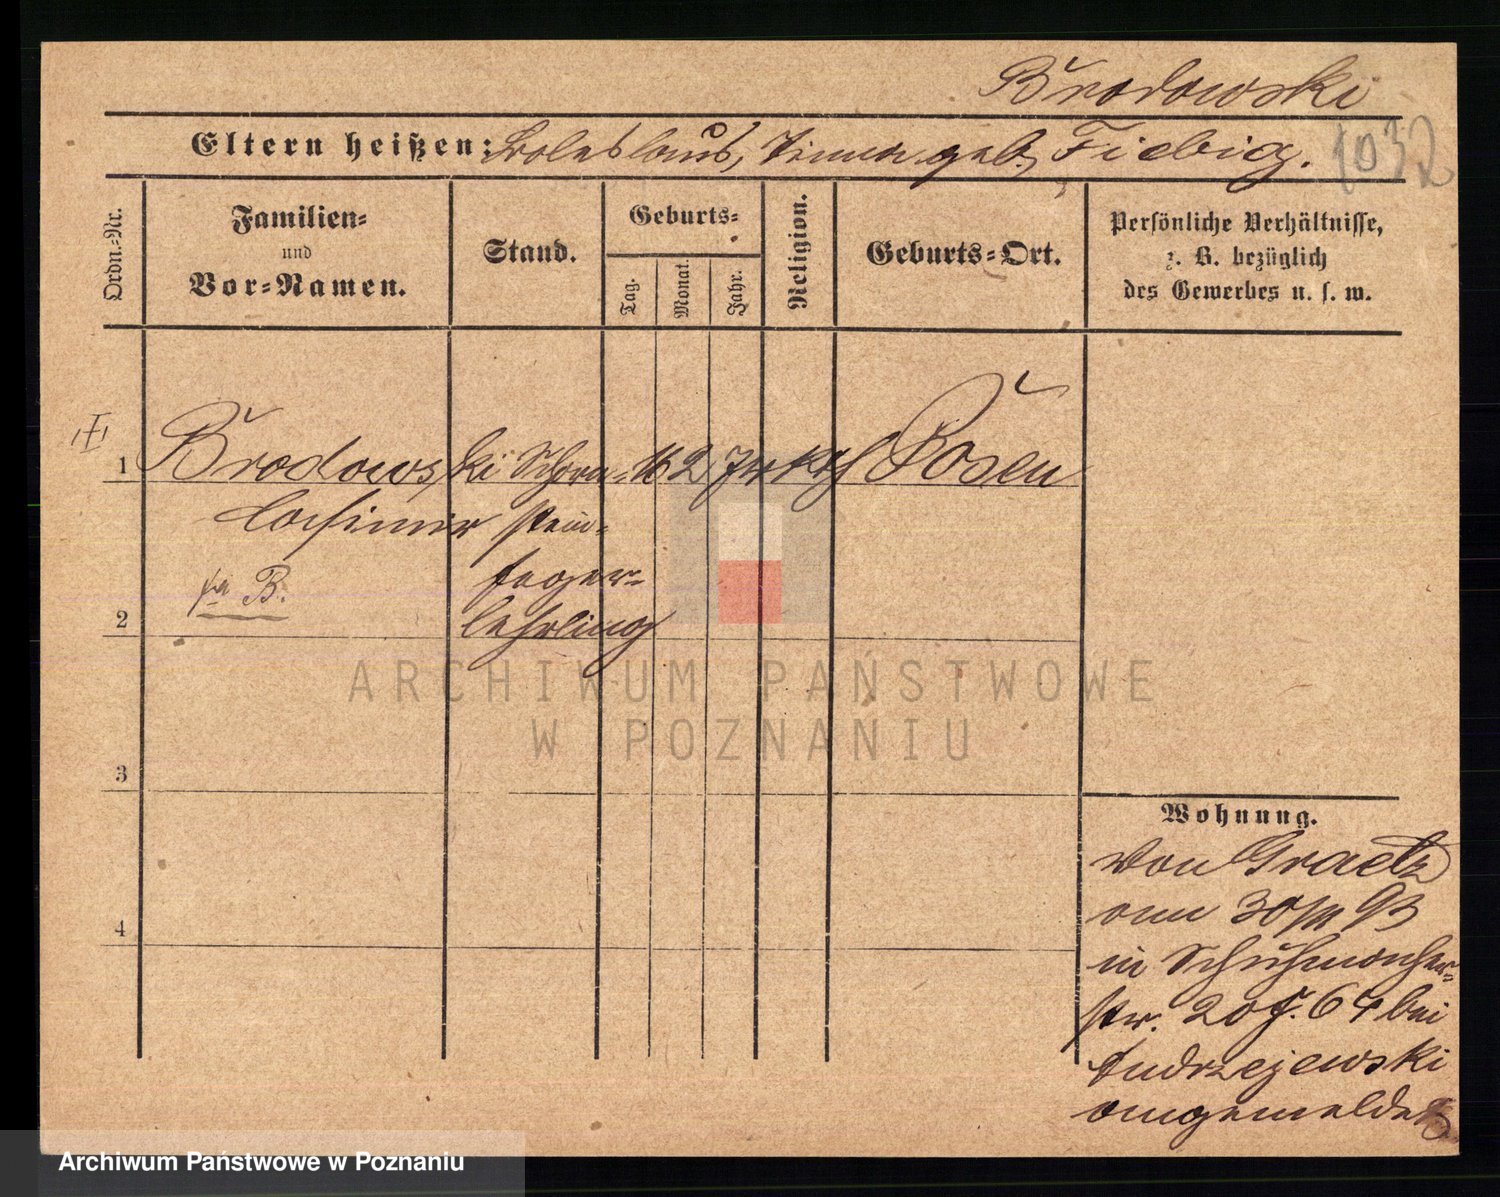 Brodowski
Eltern heißen: Boleslaus, geb. Fiebig.
1032
Ordn.=Nr.
Familien=
und
Vor=Namen.
Stand.
Geburts=
Tag.
Monat.
Jahr.
Religion.
Geburts=Ort.
Persönliche Verhältnisse,
z. B. bezüglich
des Gewerbes u. s. w.
1 Brodowski Schorn= 16 2 74 kth Posen
Casimir stein=
feger=
B.
2 lehrling
ARCHIWUM PAŃSTWOWE
W POZNANIU
3
Wohnung.
von Graetz
am 93
4
in Schuhmacher=
str. 20 bei
Andrzejewski
angemeldet
Archiwum Państwowe w Poznaniu